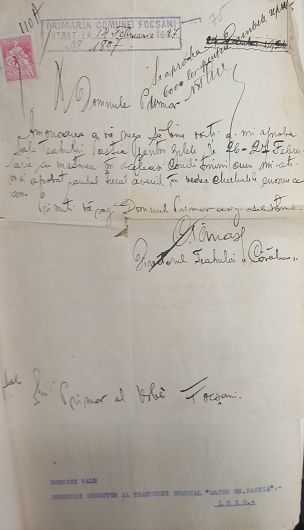 PRIMARIA COMUNEI FOCSANI
INTRAT LA 17 Februarie 1927
No 1897
75
Se aprobă
6000 lei
Domnule Primar
Am onoarea a vă ruga să bine voiți a-mi aproba
sala Teatrului Pastia pentru zilele de 26-27 Febru
arie cu matineu în aceleași condițiuni cum mi-ați
mai aprobat având în vedere cheltuelile enorme ce
am.
Primiți vă rog Domnule Primar
Directorul Teatrului "Cărăbuș"
D-sale
Dlui Primar al Urbei Focșani.
DOMNIEI SALE
DOMNULUI DIRECTOR AL TEATRULUI COMUNAL "MAIOR GH.PASTIA".-
L O C O.-